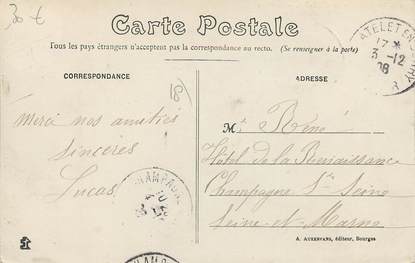 30 €
Carte Postale
Tous les pays étrangers n'acceptent pas la correspondance au recto. (Se renseigner à la poste)
CORRESPONDANCE
ADRESSE
ATELET EN
17 *
3 - 12
08
Merci nos amitiés
sincères
Lucas
M. René
Hôtel de la Renaissance
Champagne s/ Seine
Seine-et-Marne
CHAMPAG
A. AUXENFANS, éditeur, Bourges
HAM